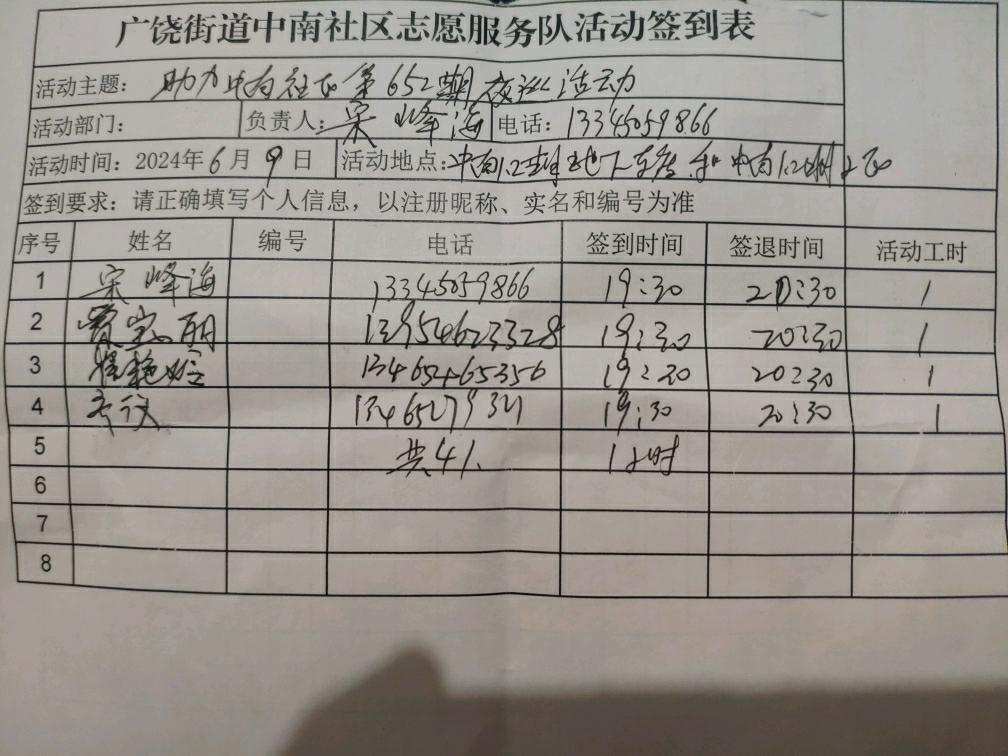 广饶街道中南社区志愿服务队活动签到表
活动主题: 助力中南社区第652期夜巡活动
活动部门: 负责人: 宋峰海 电话: 13345059866
活动时间: 2024年6月9日 活动地点: 中南1.2
签到要求: 请正确填写个人信息, 以注册昵称、实名和编号为准
序号 姓名 编号 电话 签到时间 签退时间 活动工时
1 宋峰海 13345059866 19:30 20:30 1
2 贾宝丽 13954623328 19:30 20:30 1
3 13465465356 19:30 20:30 1
4 19:30 20:30 1
5 共4人 1小时
6
7
8